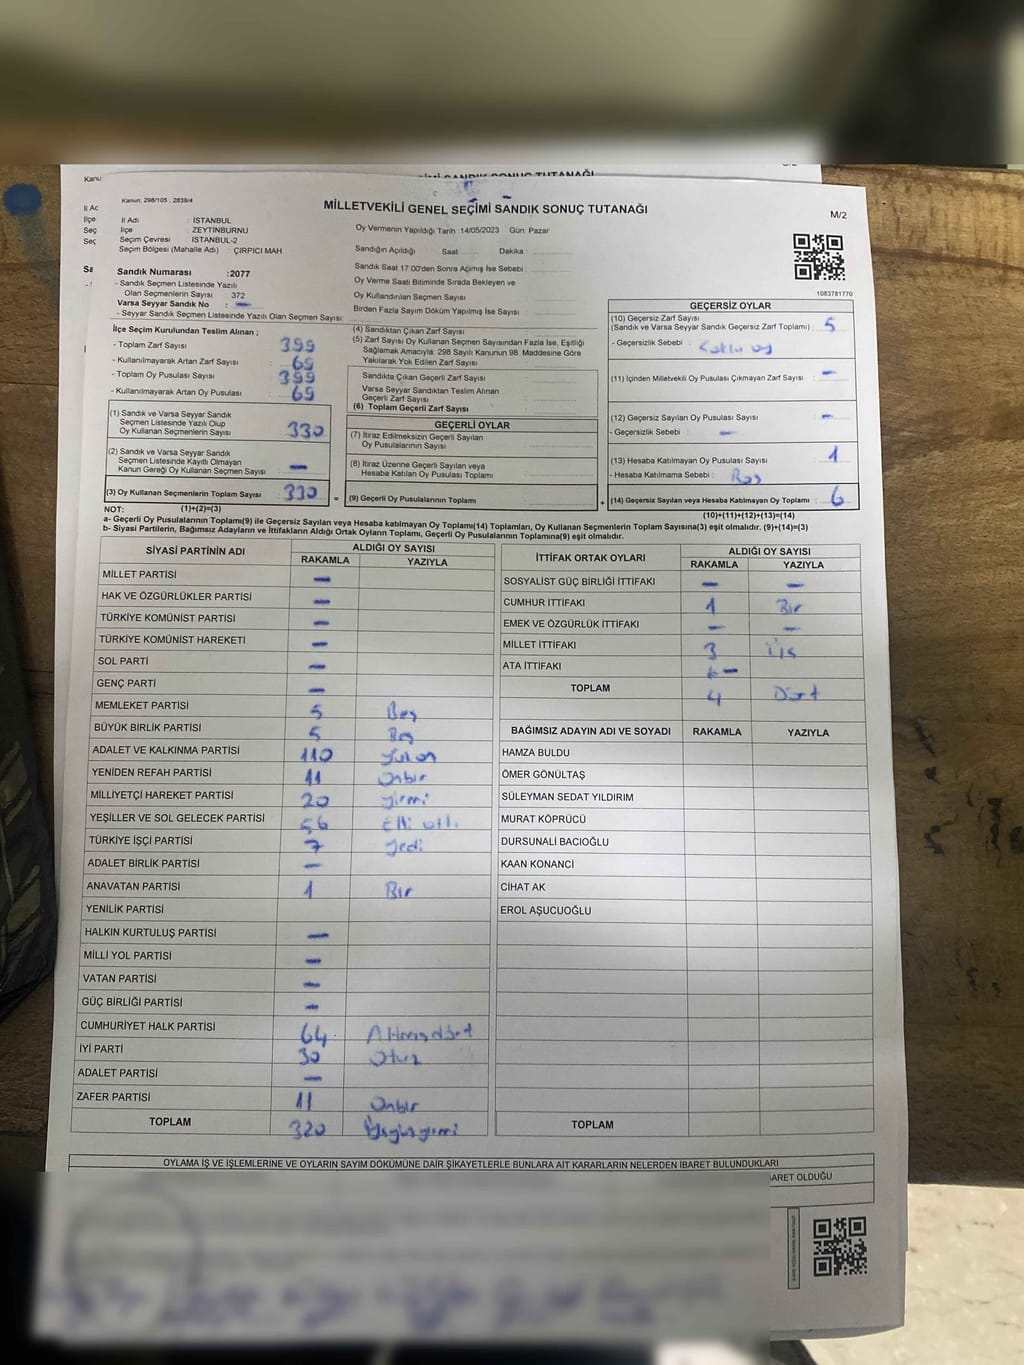 Kanu
İl Ac
İlçe
Seç
Seç
Kanun: 298/105 , 2839/4
MİLLETVEKİLİ GENEL SEÇİMİ SANDIK SONUÇ TUTANAĞI
M/2
İl Adı : İSTANBUL
İlçe : ZEYTİNBURNU
Seçim Çevresi : İSTANBUL-2
Seçim Bölgesi (Mahalle Adı) : ÇIRPICI MAH.
Oy Vermenin Yapıldığı Tarih :14/05/2023 Gün: Pazar
Sandığın Açıldığı Saat: Dakika :
Sandık Saat 17.00'den Sonra Açımış İse Sebebi :
Oy Verme Saati Bitiminde Sırada Bekleyen ve
Oy Kullandırılan Seçmen Sayısı
Birden Fazla Sayım Döküm Yapılmış İse Sayısı :
1083781770
Sandık Numarası :2077
- Sandık Seçmen Listesinde Yazılı
Olan Seçmenlerin Sayısı : 372
Varsa Seyyar Sandık No : -
- Seyyar Sandık Seçmen Listesinde Yazılı Olan Seçmen Sayısı:
İlçe Seçim Kurulundan Teslim Alınan ;
- Toplam Zarf Sayısı 399
- Kullanılmayarak Artan Zarf Sayısı 69
- Toplam Oy Pusulası Sayısı 399
- Kullanılmayarak Artan Oy Pusulası 69
(1) Sandık ve Varsa Seyyar Sandık
Seçmen Listesinde Yazılı Olup
Oy Kullanan Seçmenlerin Sayısı 330
(2) Sandık ve Varsa Seyyar Sandık
Seçmen Listesinde Kayıtlı Olmayan
Kanun Gereği Oy Kullanan Seçmen Sayısı -
(3) Oy Kullanan Seçmenlerin Toplam Sayısı 330 =
(4) Sandıktan Çıkan Zarf Sayısı
(5) Zarf Sayısı Oy Kullanan Seçmen Sayısından Fazla İse, Eşitliği
Sağlamak Amacıyla; 298 Sayılı Kanunun 98. Maddesine Göre
Yakılarak Yok Edilen Zarf Sayısı
Sandıkta Çıkan Geçerli Zarf Sayısı
Varsa Seyyar Sandıktan Teslim Alınan
Geçerli Zarf Sayısı
(6) Toplam Geçerli Zarf Sayısı
GEÇERLİ OYLAR
(7) İtiraz Edilmeksizin Geçerli Sayılan
Oy Pusulalarının Sayısı
(8) İtiraz Üzerine Geçerli Sayılan veya
Hesaba Katılan Oy Pusulası Toplamı
(9) Geçerli Oy Pusulalarının Toplamı +
GEÇERSİZ OYLAR
(10) Geçersiz Zarf Sayısı
(Sandık ve Varsa Seyyar Sandık Geçersiz Zarf Toplamı) : 5
- Geçersizlik Sebebi : oy
(11) İçinden Milletvekili Oy Pusulası Çıkmayan Zarf Sayısı : -
(12) Geçersiz Sayılan Oy Pusulası Sayısı -
- Geçersizlik Sebebi : -
(13) Hesaba Katılmayan Oy Pusulası Sayısı 1
- Hesaba Katılmama Sebebi : Boş
(14) Geçersiz Sayılan veya Hesaba Katılmayan Oy Toplamı 6
NOT: (1)+(2)=(3)
(10)+(11)+(12)+(13)=(14)
a- Geçerli Oy Pusulalarının Toplamı(9) ile Geçersiz Sayılan veya Hesaba katılmayan Oy Toplamı(14) Toplamları, Oy Kullanan Seçmenlerin Toplam Sayısına(3) eşit olmalıdır. (9)+(14)=(3)
b- Siyasi Partilerin, Bağımsız Adayların ve İttifakların Aldığı Ortak Oyların Toplamı, Geçerli Oy Pusulalarının Toplamına(9) eşit olmalıdır.
SİYASİ PARTİNİN ADI ALDIĞI OY SAYISI
RAKAMLA YAZIYLA
MİLLET PARTİSİ -
HAK VE ÖZGÜRLÜKLER PARTİSİ -
TÜRKİYE KOMÜNİST PARTİSİ -
TÜRKİYE KOMÜNİST HAREKETİ -
SOL PARTİ -
GENÇ PARTİ -
MEMLEKET PARTİSİ 5 Beş
BÜYÜK BİRLİK PARTİSİ 5 Beş
ADALET VE KALKINMA PARTİSİ 110 Yüz on
YENİDEN REFAH PARTİSİ 11 Onbir
MİLLİYETÇİ HAREKET PARTİSİ 20 yirmi
YEŞİLLER VE SOL GELECEK PARTİSİ 56 Elli altı
TÜRKİYE İŞÇİ PARTİSİ 7 yedi
ADALET BİRLİK PARTİSİ -
ANAVATAN PARTİSİ 1 Bir
YENİLİK PARTİSİ
HALKIN KURTULUŞ PARTİSİ -
MİLLİ YOL PARTİSİ -
VATAN PARTİSİ -
GÜÇ BİRLİĞİ PARTİSİ -
CUMHURİYET HALK PARTİSİ 64 Altmışdört
İYİ PARTİ 30 Otuz
ADALET PARTİSİ -
ZAFER PARTİSİ 11 Onbir
TOPLAM 320 Üçyüzyirmi
İTTİFAK ORTAK OYLARI ALDIĞI OY SAYISI
RAKAMLA YAZIYLA
SOSYALİST GÜÇ BİRLİĞİ İTTİFAKI - -
CUMHUR İTTİFAKI 1 Bir
EMEK VE ÖZGÜRLÜK İTTİFAKI - -
MİLLET İTTİFAKI 3 Üç
ATA İTTİFAKI -
TOPLAM 4 Dört
BAĞIMSIZ ADAYIN ADI VE SOYADI RAKAMLA YAZIYLA
HAMZA BULDU
ÖMER GÖNÜLTAŞ
SÜLEYMAN SEDAT YILDIRIM
MURAT KÖPRÜCÜ
DURSUNALİ BACIOĞLU
KAAN KONANCİ
CİHAT AK
EROL AŞUCUOĞLU
TOPLAM
OYLAMA İŞ VE İŞLEMLERİNE VE OYLARIN SAYIM DÖKÜMÜNE DAİR ŞİKAYETLERLE BUNLARA AİT KARARLARIN NELERDEN İBARET BULUNDUKLARI
BARET OLDUĞU